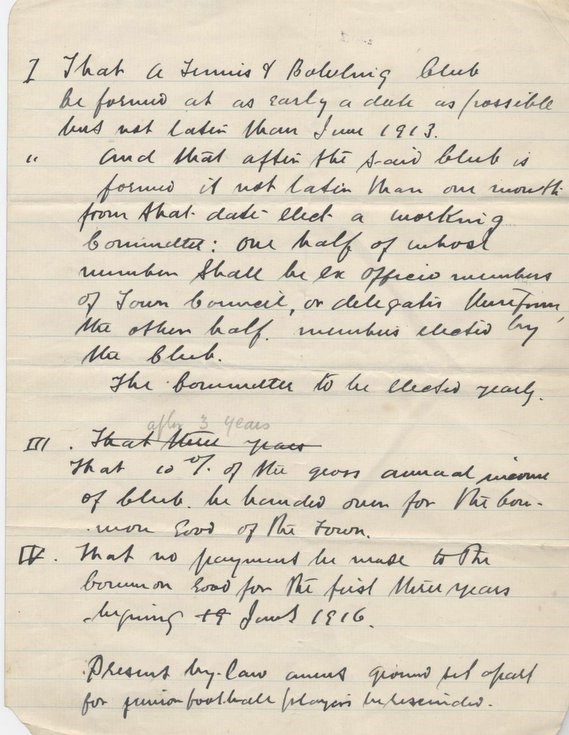 I That a Tennis & Bowling Club
be formed at as early a date as possible
but not later than June 1913.
" and that after the said Club is
formed it not later than one month
from that date elect a working
Committee: one half of whose
number shall be ex officio members
of Town Council, or delegates therefrom,
the other half. members elected by
the Club.
The Committee to be elected yearly.
after 3 years
III. That three years
That 10 % of the gross annual income
of Club be handed over for the Com-
mon Good of the Town.
IV. That no payment be made to the
Common Good for the first three years
19 June 1916.
Present by-law ground set apart
for junior football players be rescinded.